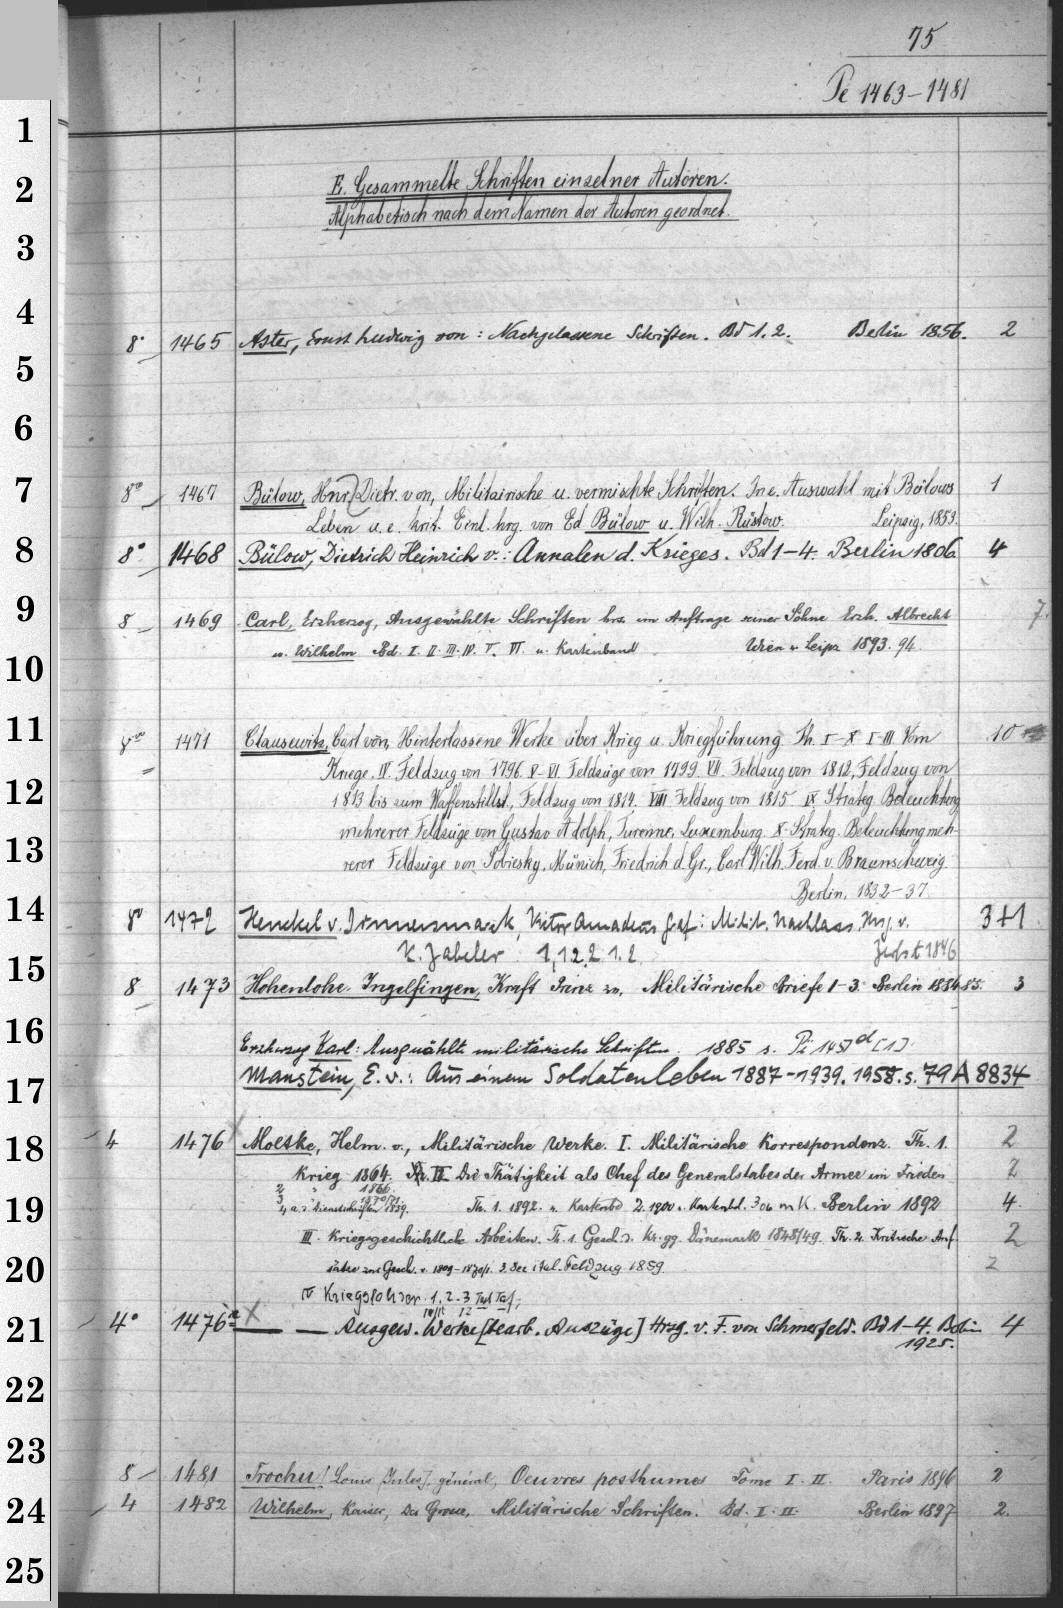 75
Pe 1463-1481
E. Gesammelte Schriften einzelner Autoren.
Alphabetisch nach dem Namen der Autoren geordnet.
8° 1465 Aster, Ernst Ludwig von: Nachgelassene Schriften. Bd 1. 2. Berlin 1856. 2
8° 1467 Bülow, Hnr. Dietr. von, Militairische u. vermischte Schriften. In e. Auswahl mit Bülows 1
Leben u. e. krit. Einl. hrg. von Ed Bülow u. Wilh. Rüstow. Leipzig, 1853.
8° 1468 Bülow, Dietrich Heinrich v.: Annalen d. Krieges. Bd 1-4. Berlin 1806 4
8 1469 Carl, Erzherzog, Ausgewählte Schriften hrs. im Auftrage seiner Söhne Erzh. Albrecht 7.
u. Wilhelm Bd. I. II. III. IV. V. VI. u. Kartenband Wien u Leipz 1893. 94.
8° 1471 Clausewitz, Carl von, Hinterlassene Werke über Krieg u. Kriegführung Th. I-X I-III Vom 10
Kriege. IV. Feldzug von 1796. V-VI. Feldzüge von 1799. VII. Feldzug von 1812, Feldzug von
1813 bis zum Waffenstillst., Feldzug von 1814. VIII Feldzug von 1815 IX Strateg. Beleuchtung
mehrerer Feldzüge von Gustav Adolph, Turenne, Luxemburg. X. Strateg. Beleuchtung meh-
rerer Feldzüge von Sobiesky, Münich, Friedrich d. Gr., Carl Wilh. Ferd. v. Braunschweig.
Berlin, 1832-37.
8° 1472 Henckel v. Donnersmarck, Victor Amadeus Graf: Milit. Nachlass. Hrsg. v. 3+1
K. Zabeler 1,1 2.2 1.2. Zerbst 1846
8 1473 Hohenlohe Ingelfingen, Kraft Prinz zu, Militärische Briefe 1-3. Berlin 1884 85. 3
Erzherzog Karl: Ausgewählte militärische Schriften 1885 s. Pe 1457d [1].
Manstein, E. v.: Aus einem Soldatenleben 1887-1939. 1958. s. 79 A 8834
4 1476 Moltke, Helm. v., Militärische Werke. I. Militärische Korrespondenz. Th. 1. 2
Krieg 1864. II. Die Thätigkeit als Chef des Generalstabes der Armee im Frieden 2
2 " 1866.
3 " 1870/71.
4, a. d. Dienstschriften 1859. Th. 1. 1892. u. Kartenbd 2. 1900 u. Kartenbd. 3 06 m K. Berlin 1892 4.
III. Kriegsgeschichtliche Arbeiten. Th. 1. Gesch. d. Kr. gg. Dänemark 1848/49. Th. 2. Kritische Auf 2
sätze zur Gesch. v. 1809-1870/1. 3. Der ital. Feldzug 1859. 2
IV Kriegslehren. 1. 2. 3 Text Taf.
4° 1476a — — Ausgew. Werke [bearb. Auszüge] Hrsg. v. F. von Schmerfeld. Bd 1-4. Berlin 4
1925.
8 1481 Trochu [Louis Jules], général, Oeuvres posthumes Tome I. II. Paris 1896 2
4 1482 Wilhelm, Kaiser, Der Grosse, Militärische Schriften. Bd. I. II. Berlin 1897 2.
1
2
3
4
5
6
7
8
9
10
11
12
13
14
15
16
17
18
19
20
21
22
23
24
25